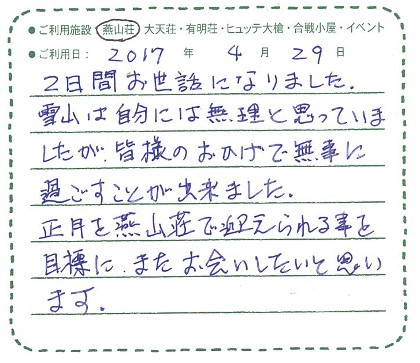 ●ご利用施設 燕山荘 大天荘・有明荘・ヒュッテ大槍・合戦小屋・イベント
●ご利用日： 2017 年 4 月 29 日
2日間お世話になりました。
雪山は自分には無理と思っていま
したが、皆様のおかげで無事に
過ごすことが出来ました。
正月を燕山荘で迎えられる事を
目標に、またお会いしたいと思い
ます。